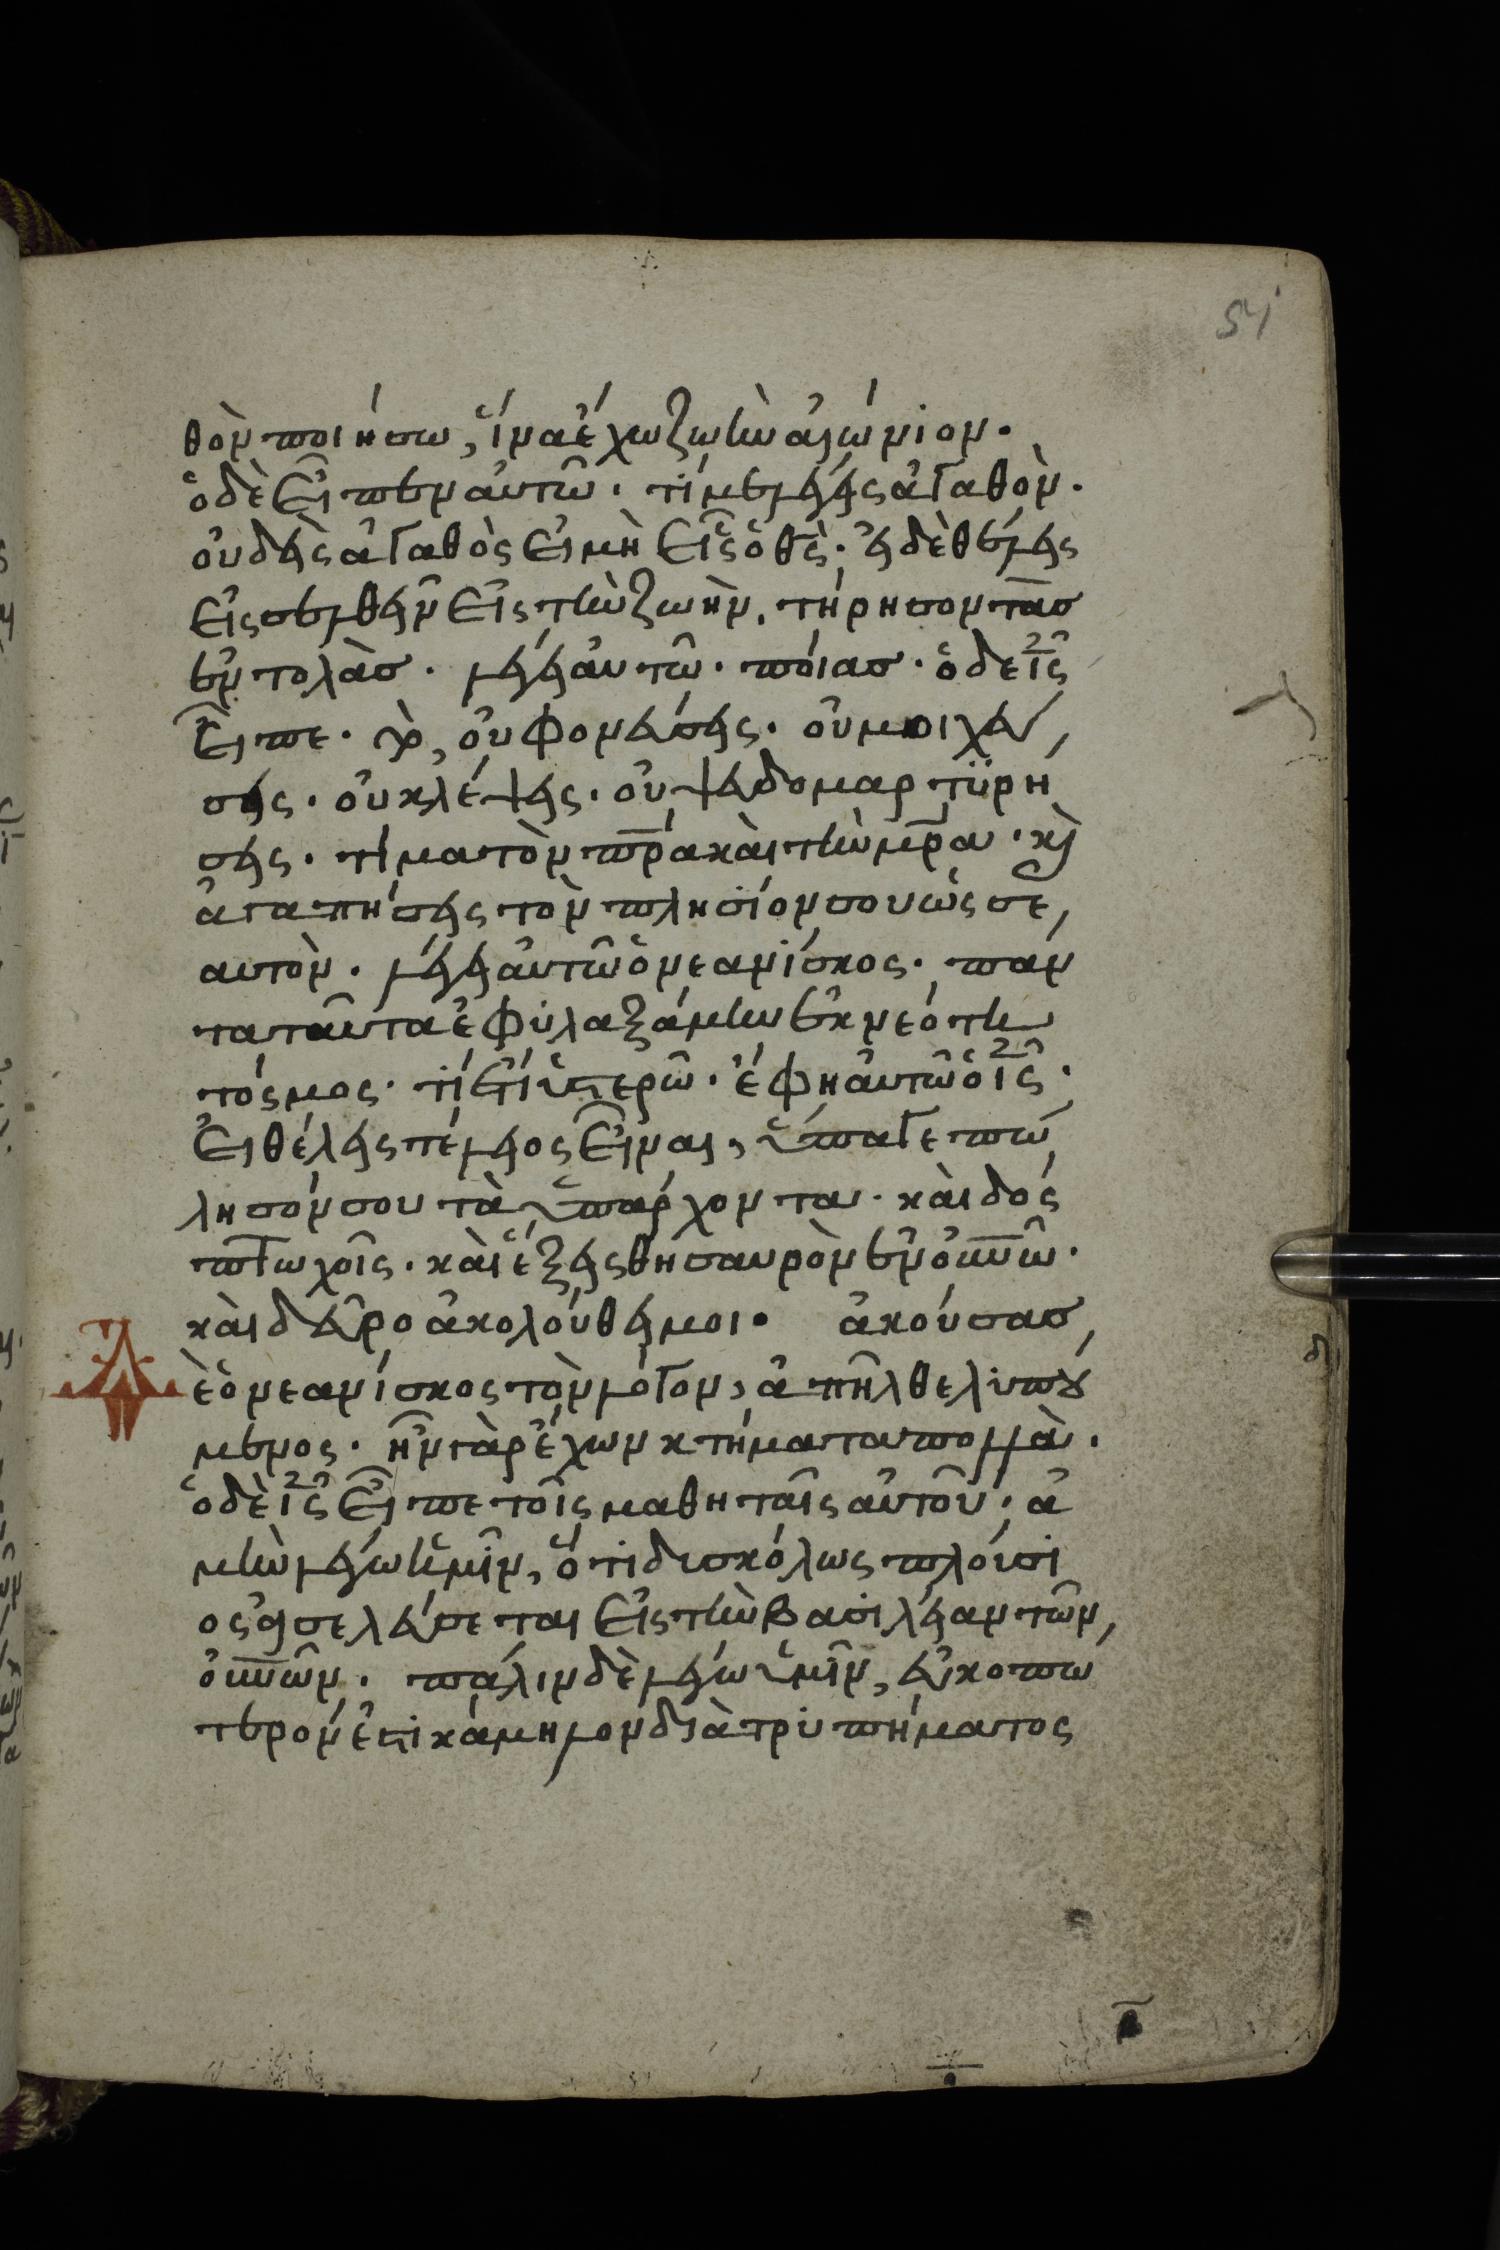 51
θὸν ποιήσω, ἵνα ἔχω ζωὴν αἰώνιον.
ὁ δὲ εἶπεν αὐτῶ. τί με λέγεις ἀγαθὸν.
οὐδεὶς ἀγαθὸς εἰ μὴ εἷς ὁ θς̄. εἰ δὲ θέλεις
εἰσελθεῖν εἰς τὴν ζωὴν, τήρησον τὰσ
ἐντολὰσ. λέγει αὐτῶ. ποίασ. ὁ δὲ ις̄
εἶπε. τὸ, οὐ φονεύσεις. οὐ μοιχεύ
σεις. οὐ κλέψεις. οὐ ψευδομαρτϋρή
σεις. τίμα τὸν πρ̄α καὶ τὴν μρ̄α. κὶ
ἀγαπήσεις τὸν πλησίον σου ὡς σε
αυτὸν. λέγει αὐτῶ ὁ νεανίσκος. πάν
τα ταῦτα ἐφυλαξάμην ἐκ νεότη
τός μος. τί ἔτι ὑστερῶ. ἔφη αὐτῶ ὁ ις̄.
εἰ θέλεις τέλειος εἶναι, ὕπαγε πώ
λησόν σου τὰ ὑπάρχοντα. καὶ δός
πτωχοῖς. καὶ ἕξεις θησαυρὸν ἐν οὐνῶ.
καὶ δεῦρο ἀκολούθει μοι. ἀκούσασ
δὲ ὁ νεανίσκος τὸν λόγον, ἀπῆλθε λυπού
μενος. ἦν γὰρ ἔχων κτήματα πολλὰ.
ὁ δὲ ις̄ εἶπε τοῖς μαθηταῖς αὐτοῦ. ἀ
μὴν λέγω ὑμῖν, ὅτι δυσκόλως πλούσι
ος εἰσελεύσεται εἰς τὴν βασιλείαν τῶν
οὐνῶν. πάλιν δὲ λέγω ὑμῖν, εὐκοπώ
τερόν ἐστι κάμηλον διὰ τρυπήματος